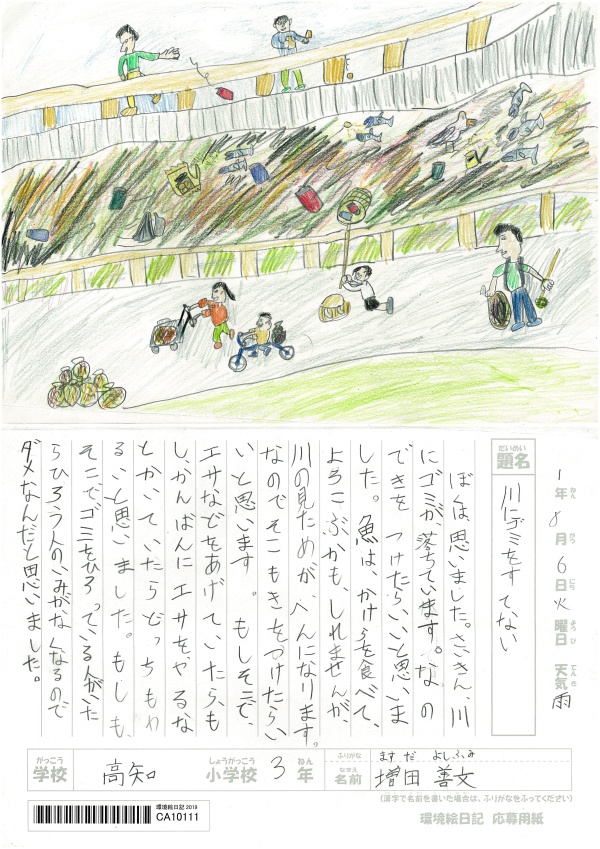 1年8月6日火曜日 天気雨
ねん がつ にち ようび てんき
だいめい
題名
川にゴミをすてない
ぼくは、思いました。さいきん、川
にゴミが、落ちています。な、の
できを つけたらいいと思いま
した。魚は、かけらを食べて、
よろこぶかも、しれませんが、
川の見ためが、へんになります。
なのでそこもきをつけたらい
いと思います 。もしそこで、
エサなどをあげていたら、も
しかんばんに エサをやるな
とかいていたらどっちもわ
るいと思いました。もしも、
そこでゴミをひろっている人がいた
らひろう人のいみがなくなるので
ダメなんだと思いました。
がっこう しょうがっこう ねん ふりがな ますだ よしふみ
学校 高知 小学校 3年 なまえ 名前 増田 善文
(漢字で名前を書いた場合は、ふりがなをふってください)
環境絵日記 2019
CA10111
環境絵日記 応募用紙